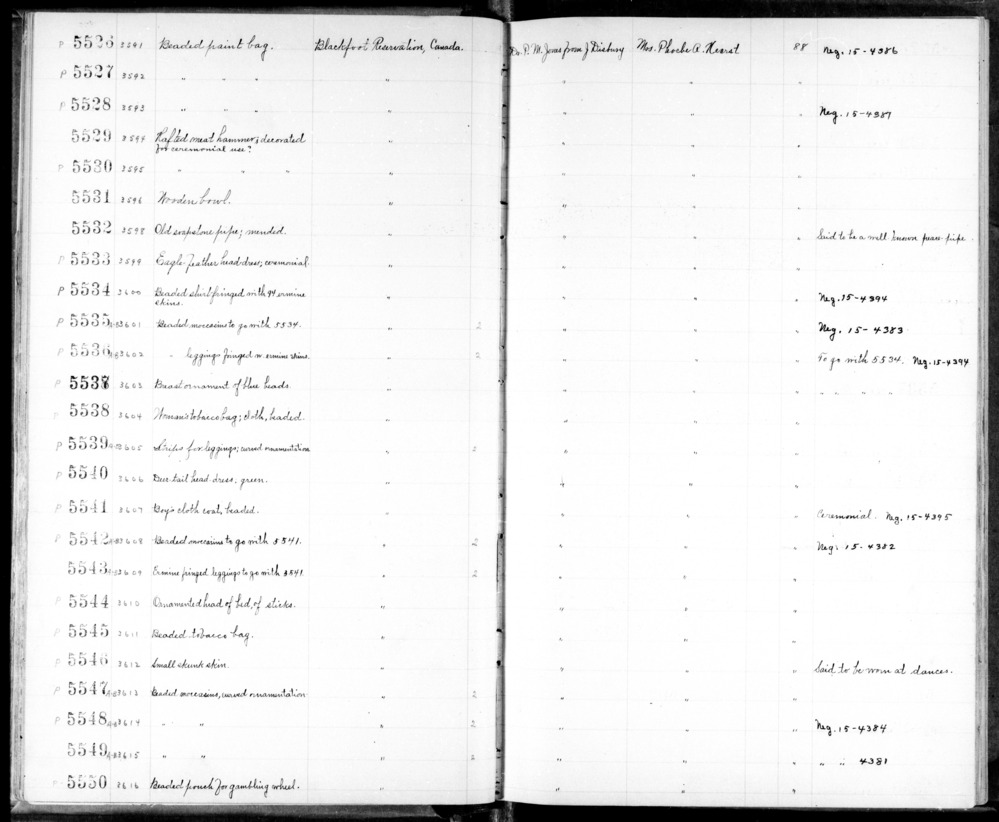 P 5526 3591 Beaded paint bag. Blackfoot Reservation, Canada. Dr. P. M. Jones from J Disbury Mrs. Phoebe A. Hearst 88 Neg. 15-4386
P 5527 3592 " " " " " " "
P 5528 3593 " " " " " " " Neg. 15-4387
5529 3594 Hafted meat hammer; decorated " " " "
for ceremonial use?
P 5530 3595 " " " " " " "
5531 3596 Wooden bowl. " " " "
5532 3598 Old soapstone pipe; mended. " " " " Said to be a well known peace-pipe.
P 5533 3599 Eagle-feather head-dress; ceremonial. " " " "
P 5534 3600 Beaded shirt fringed with 94 ermine " " " " Neg. 15-4394
skins.
P 5535 A-B 3601 Beaded moccasins to go with 5534. " 2 " " " Neg. 15-4383
P 5536 A-B 3602 " leggings fringed w. ermine skins. " 2 " " " To go with 5534. Neg. 15-4394
P 5537 3603 Breast ornament of blue beads. " " " " " " " "
P 5538 3604 Woman's tobacco bag; cloth, beaded. " " " "
P 5539 A-B 3605 Strips for leggings; curved ornamentation " 2 " " "
P 5540 3606 Deer-tail head-dress, green. " " " "
P 5541 3607 Boy's cloth coat, beaded. " " " " Ceremonial. Neg. 15-4395
P 5542 A-B 3608 Beaded moccasins to go with 5541. " 2 " " " Neg. 15-4382
5543 A-B 3609 Ermine fringed leggings to go with 5541 " 2 " " "
P 5544 3610 Ornamented head of bed, of sticks. " " " "
P 5545 3611 Beaded tobacco bag. " " " "
P 5546 3612 Small skunk skin. " " " " Said to be worn at dances.
P 5547 A-B 3613 Beaded moccasins, curved ornamentation " 2 " " "
P 5548 A-B 3614 " " " 2 " " " Neg. 15-4384
5549 A-B 3615 " " " 2 " " " " " 4381
P 5550 3616 Beaded pouch for gambling wheel. " " " "